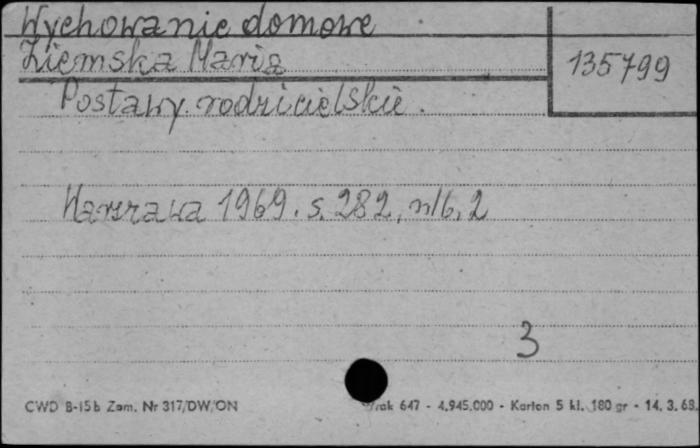 Wychowanie domowe
Ziemska Maria
135799
Postawy rodzicielskie.
Warszawa 1969. s. 282, nlb, 2
3
CWD B-15b Zam. Nr 317/DW/ON
647 - 4.945.000 - Karton 5 kl. 180 gr - 14. 3. 68.